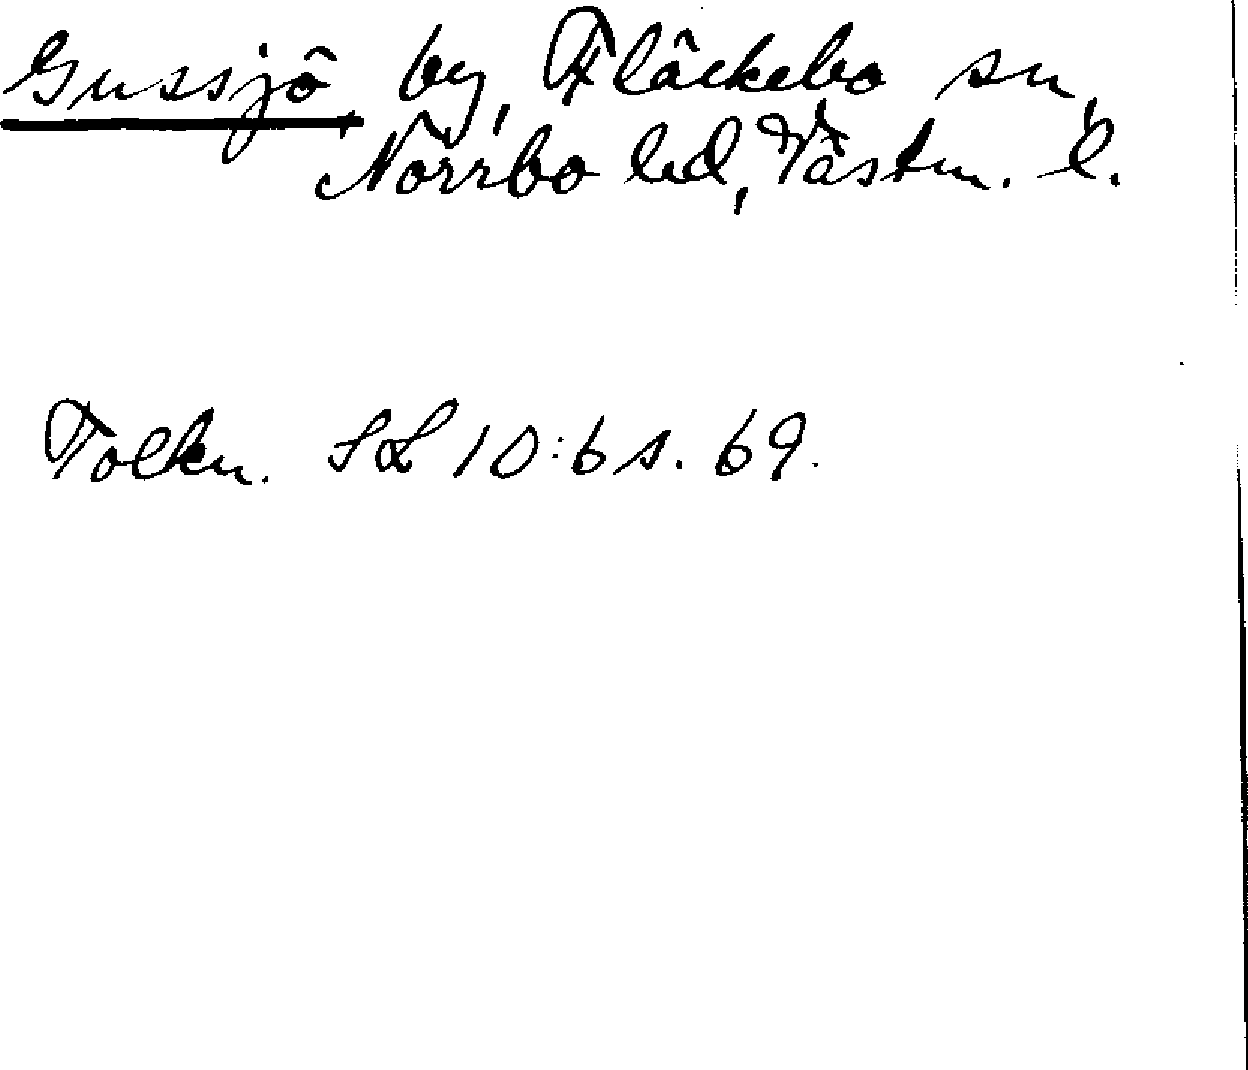 Gussjö, by, Fläckebo sn,
Norrbo hd, Västm. l.
Tolkn. SL 10:6 s. 69.